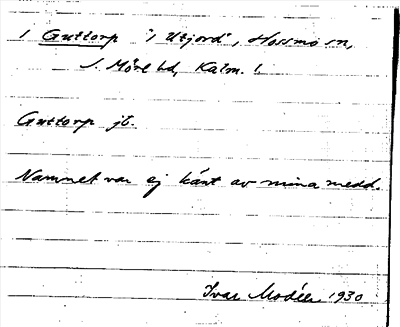 / Guttorp "i Utjord", Hossmo sn,
S. Möre hd, Kalm. l.
Guttorp jb.
Namnet var ej känt av mina medd.
Ivar Modéer 1930